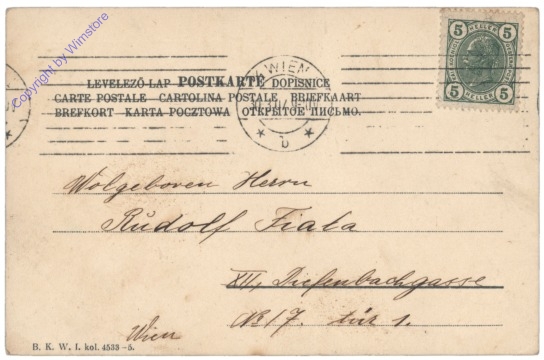 Copyright by Wimstore
5 5
HELLER
5 HELLER 5
WIEN
LEVELEZŐ-LAP POSTKARTE DOPISNICE
CARTE POSTALE CARTOLINA POSTALE BRIEFKAART
BREFKORT KARTA POCZTOWA ОТКРЫТОЕ ПИСЬМО.
Wolgeboren Herrn
Rudolf Fiala
XII, Diefenbachgasse
No 17. tür 1.
Wien
B. K. W. I. kol. 4533-5.